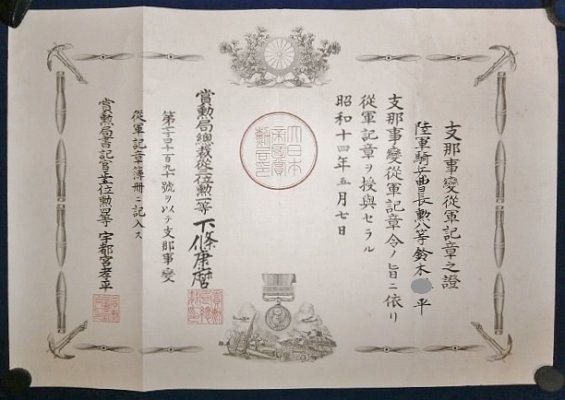 支那事變從軍記章之證
陸軍騎兵曹長勲八等鈴木 平
支那事變從軍記章令ノ旨ニ依リ
從軍記章ヲ授與セラル
昭和十四年五月七日
大日本帝國賞勲局印
賞勲局總裁從三位勲一等下條康麿
號ヲ以テ支那事變
從軍記章簿冊ニ記入ス
賞勲局書記官 位勲四等宇都宮孝平